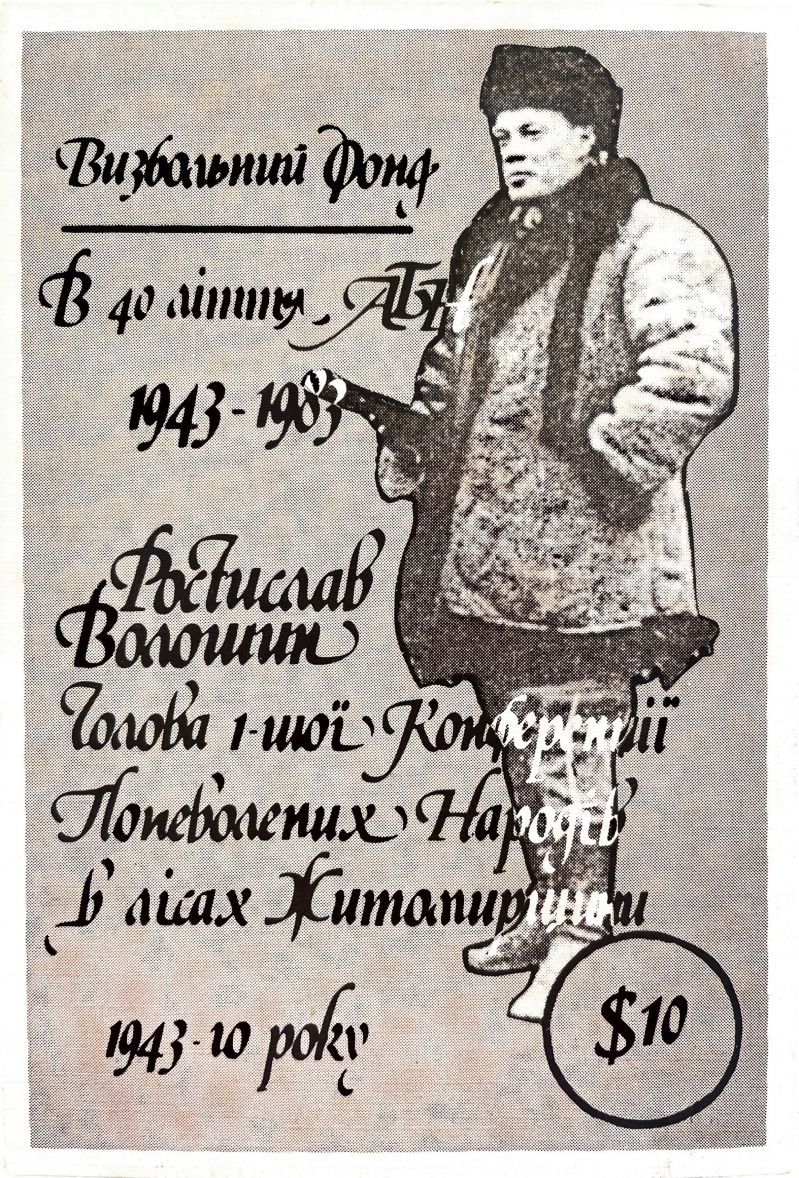 Визвольний Фонд
В 40 ліття АБН
1943-1983
Ростислав
Волошин
Голова 1-шої Конференції
Поневолених Народів
в лісах Житомирщини
1943-го року
$10